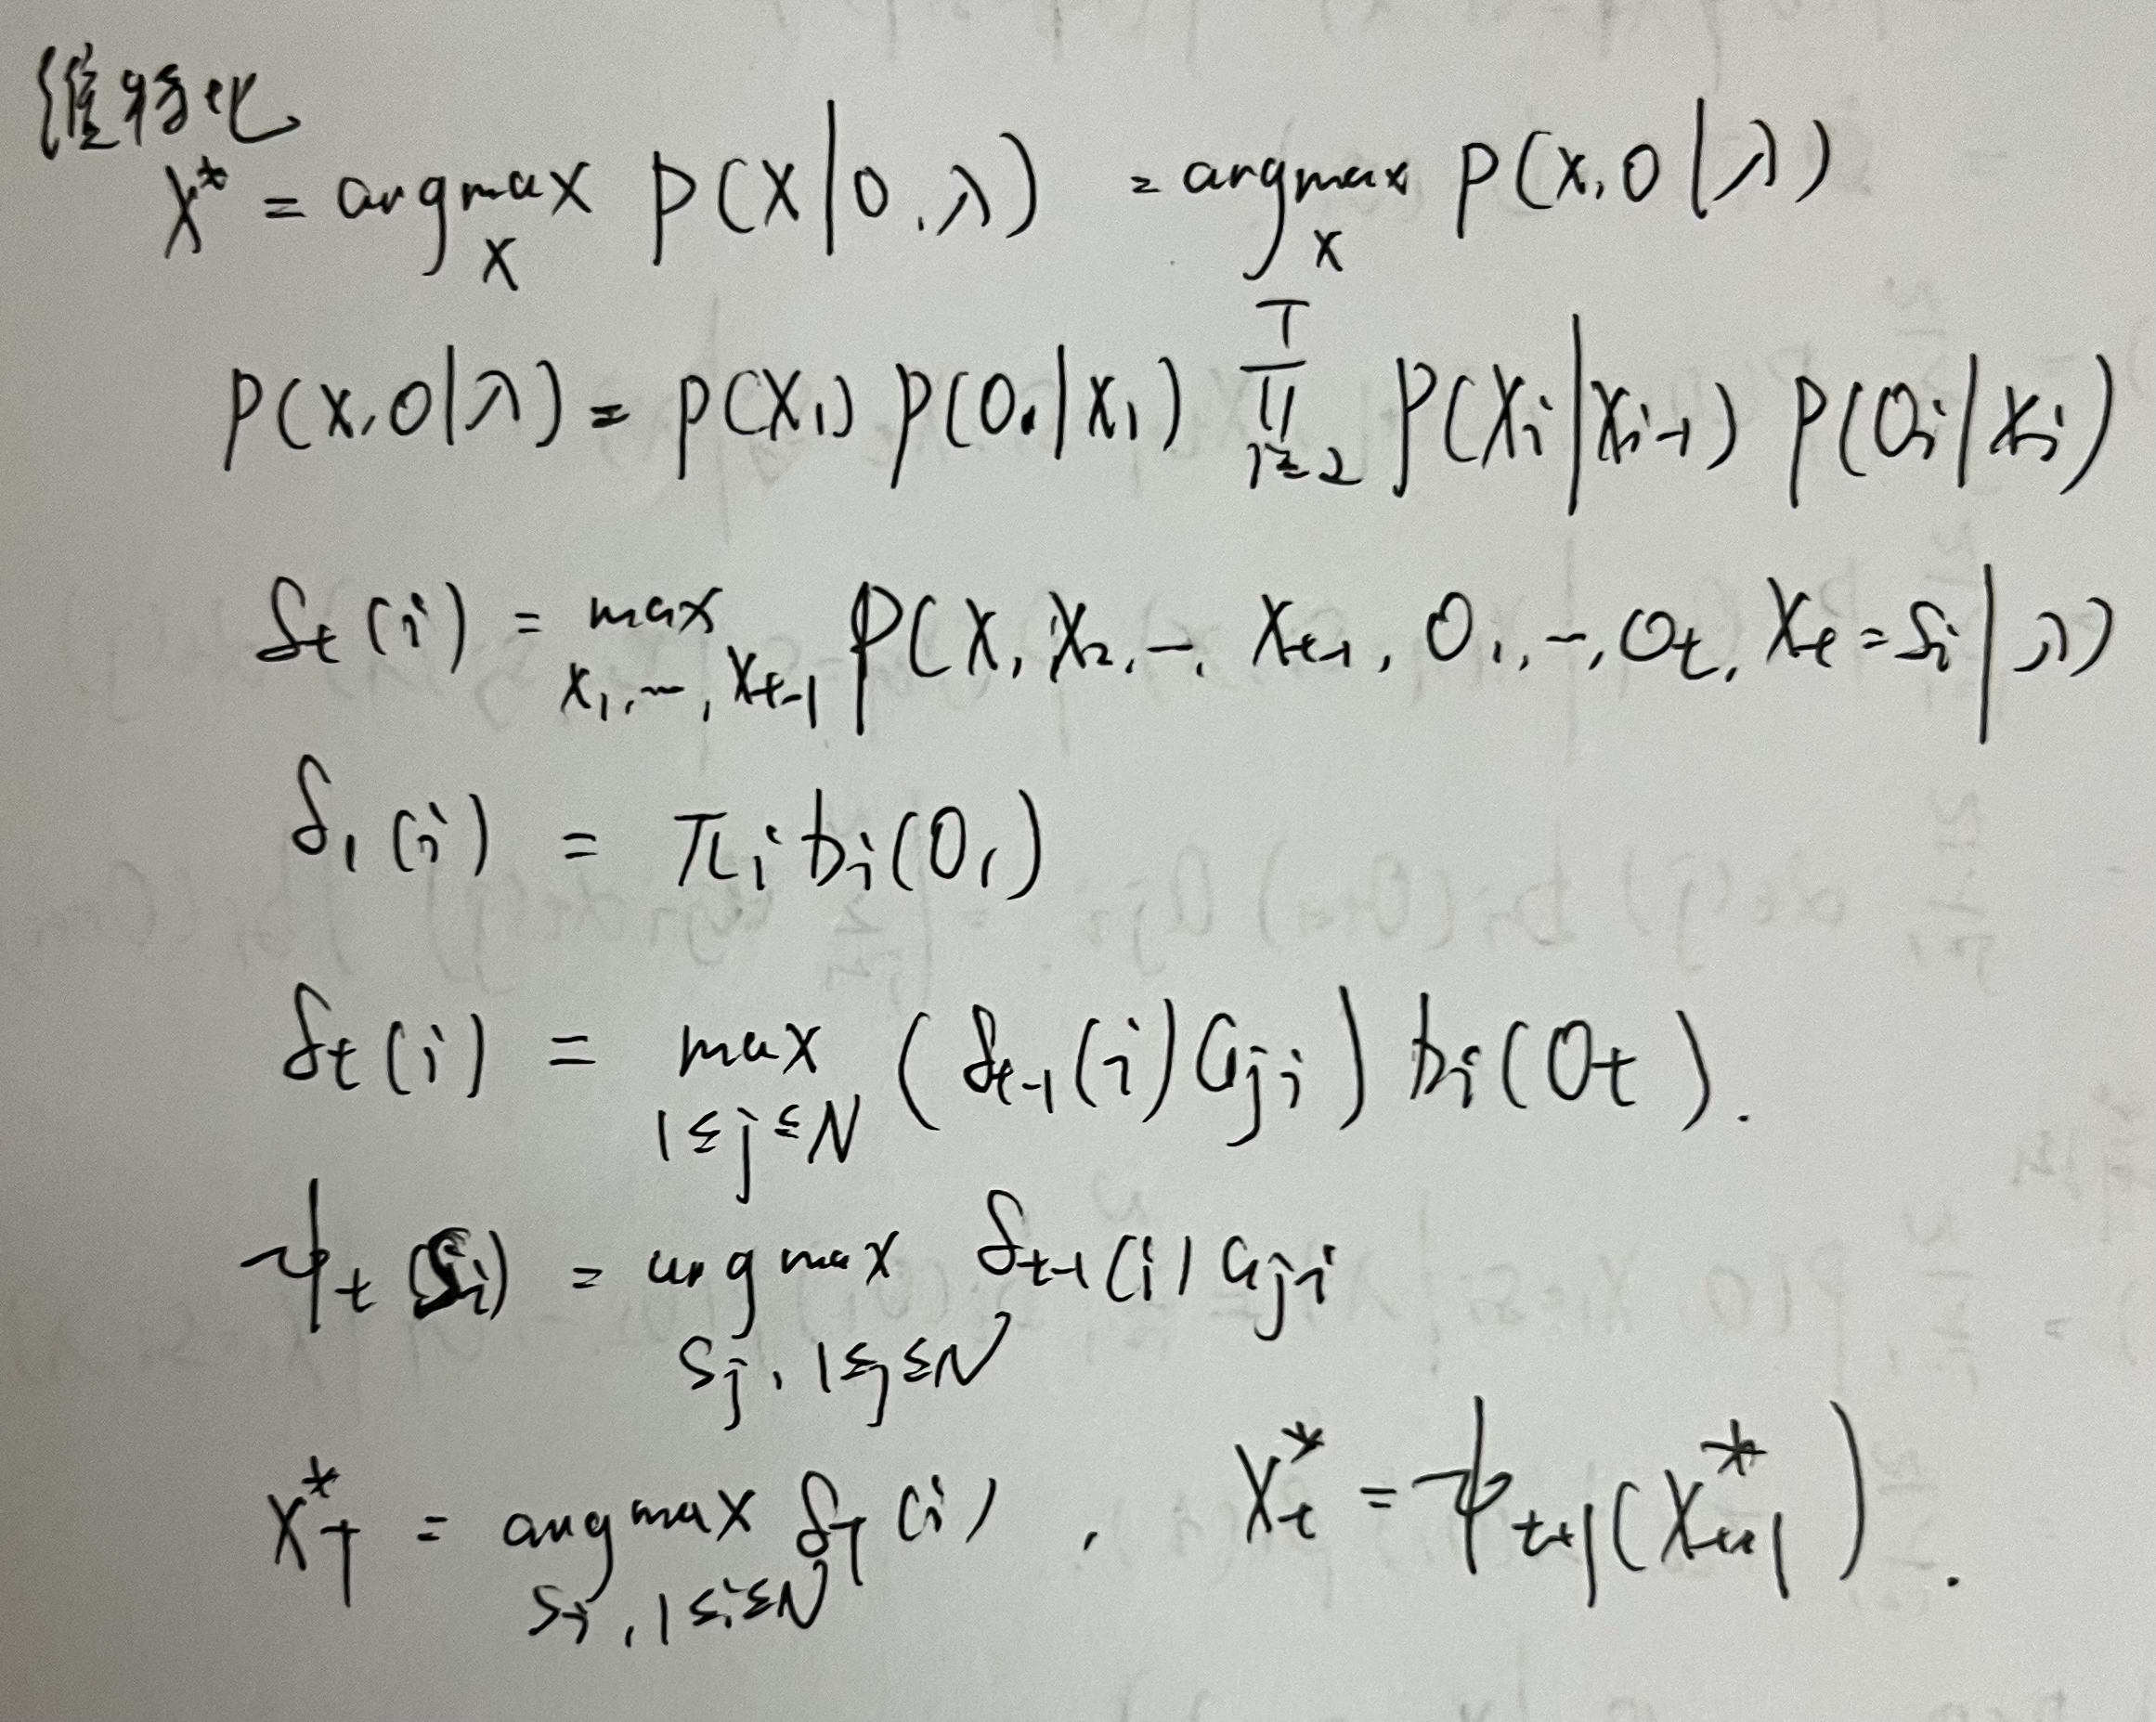 维特比
X* = argmax_X P(X|O,λ) = argmax_X P(X,O|λ)
P(X,O|λ) = P(X₁) P(O₁|X₁) ∏_{i=2}^{T} P(Xᵢ|Xᵢ₋₁) P(Oᵢ|Xᵢ)
δₜ(i) = max_{X₁,…,Xₜ₋₁} P(X, X₂,…, Xₜ₋₁, O₁,…,Oₜ, Xₜ=Sᵢ|λ)
δ₁(i) = πᵢ bᵢ(O₁)
δₜ(i) = max_{1≤j≤N} (δₜ₋₁(i) aⱼᵢ) bᵢ(Oₜ).
ψₜ(Sᵢ) = argmax_{Sⱼ, 1≤j≤N} δₜ₋₁(i) aⱼᵢ
X*_T = argmax_{Sᵢ, 1≤i≤N} δ_T(i), X*ₜ = ψₜ₊₁(X*ₜ₊₁).